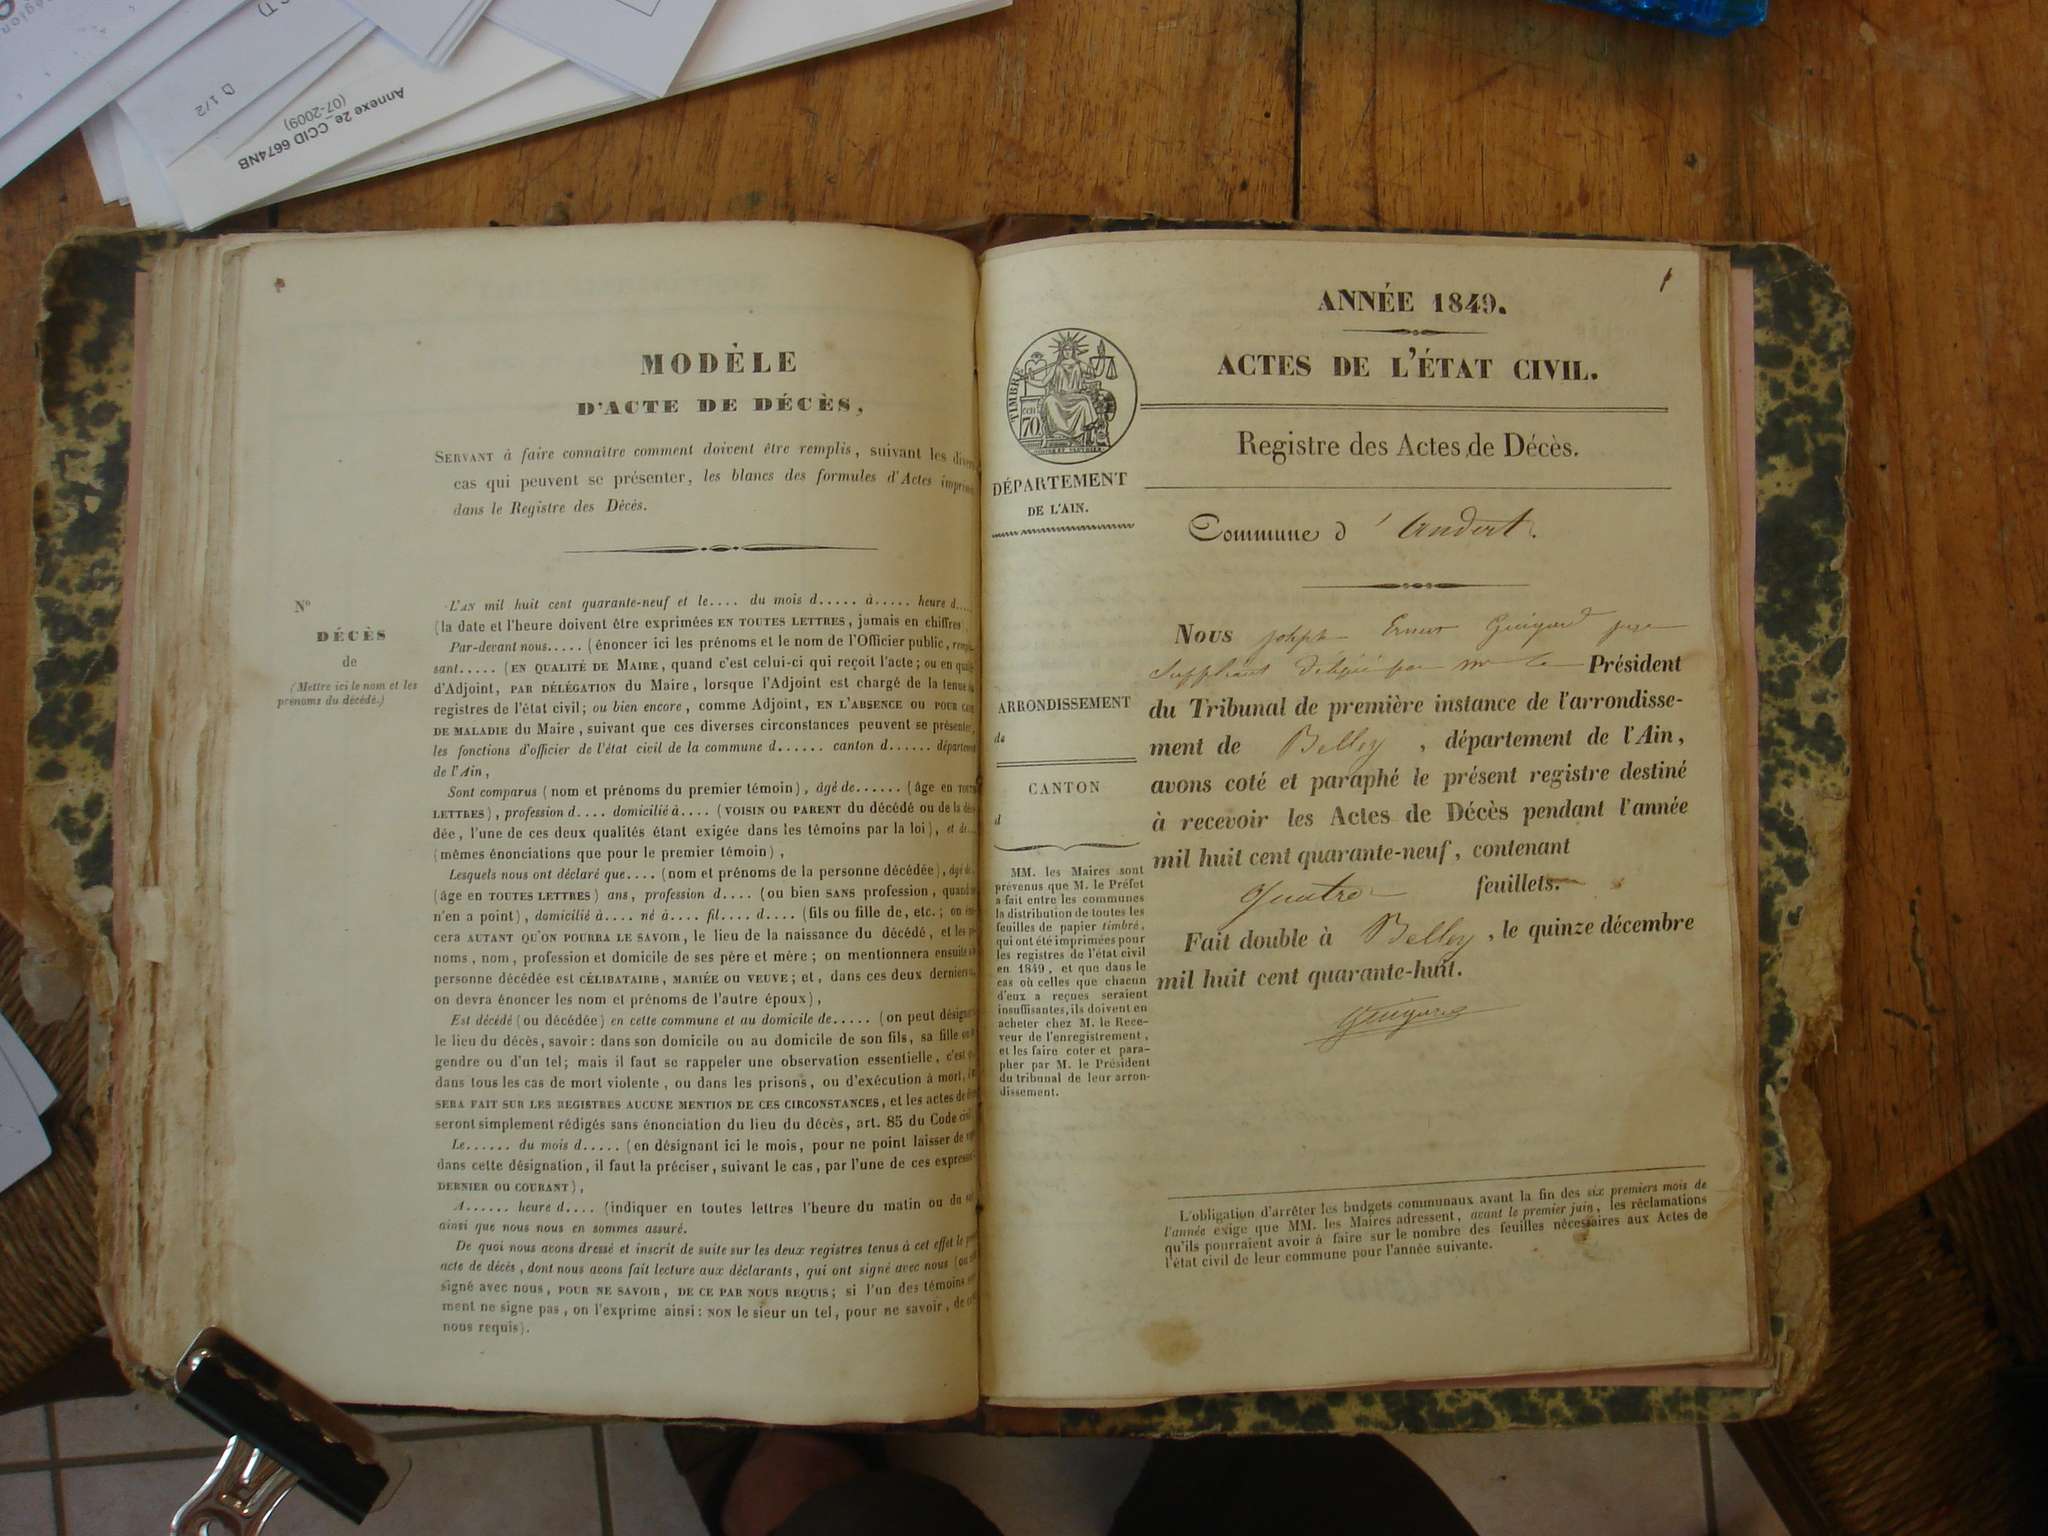 D 1/2
Annexe 2e_CCID 6674NB
(07-2009)
MODÈLE
D'ACTE DE DÉCÈS,
SERVANT à faire connaître comment doivent être remplis, suivant les divers
cas qui peuvent se présenter, les blancs des formules d'Actes imprimés
dans le Registre des Décès.
N°
DÉCÈS
de
(Mettre ici le nom et les
prénoms du décédé.)
L'AN mil huit cent quarante-neuf et le.... du mois d..... à..... heure d.....
(la date et l'heure doivent être exprimées EN TOUTES LETTRES, jamais en chiffres)
Par-devant nous..... (énoncer ici les prénoms et le nom de l'Officier public, remplis-
sant..... (EN QUALITÉ DE MAIRE, quand c'est celui-ci qui reçoit l'acte; ou en qualité
d'Adjoint, PAR DÉLÉGATION du Maire, lorsque l'Adjoint est chargé de la tenue des
registres de l'état civil; ou bien encore, comme Adjoint, EN L'ABSENCE OU POUR CAUSE
DE MALADIE du Maire, suivant que ces diverses circonstances peuvent se présenter,
les fonctions d'officier de l'état civil de la commune d...... canton d...... département
de l'Ain,
Sont comparus (nom et prénoms du premier témoin), âgé de...... (âge en TOUTES
LETTRES), profession d.... domicilié à.... (VOISIN OU PARENT du décédé ou de la décé-
dée, l'une de ces deux qualités étant exigée dans les témoins par la loi), et de...
(mêmes énonciations que pour le premier témoin),
Lesquels nous ont déclaré que.... (nom et prénoms de la personne décédée), âgé de..
(âge en TOUTES LETTRES) ans, profession d.... (ou bien SANS profession, quand on
n'en a point), domicilié à.... né à.... fil.... d.... (fils ou fille de, etc.; on énon-
cera AUTANT QU'ON POURRA LE SAVOIR, le lieu de la naissance du décédé, et les pré-
noms, nom, profession et domicile de ses père et mère; on mentionnera ensuite si la
personne décédée est CÉLIBATAIRE, MARIÉE OU VEUVE; et, dans ces deux derniers cas,
on devra énoncer les nom et prénoms de l'autre époux),
Est décédé (ou décédée) en cette commune et au domicile de..... (on peut désigner
le lieu du décès, savoir: dans son domicile ou au domicile de son fils, sa fille ou son
gendre ou d'un tel; mais il faut se rappeler une observation essentielle, c'est que
dans tous les cas de mort violente, ou dans les prisons, ou d'exécution à mort, il ne
SERA FAIT SUR LES REGISTRES AUCUNE MENTION DE CES CIRCONSTANCES, et les actes de décès
seront simplement rédigés sans énonciation du lieu du décès, art. 85 du Code civil.
Le...... du mois d..... (en désignant ici le mois, pour ne point laisser de vague
dans cette désignation, il faut la préciser, suivant le cas, par l'une de ces expressions
DERNIER OU COURANT),
A...... heure d.... (indiquer en toutes lettres l'heure du matin ou du soir)
ainsi que nous nous en sommes assuré.
De quoi nous avons dressé et inscrit de suite sur les deux registres tenus à cet effet le présent
acte de décès, dont nous avons fait lecture aux déclarants, qui ont signé avec nous (ou non
signé avec nous, POUR NE SAVOIR, DE CE PAR NOUS REQUIS; si l'un des témoins seule-
ment ne signe pas, on l'exprime ainsi: NON le sieur un tel, pour ne savoir, de ce par
nous requis).
1
ANNÉE 1849.
ACTES DE L'ÉTAT CIVIL.
Registre des Actes de Décès.
TIMBRE
cen
70
DÉPARTEMENT
DE L'AIN.
Commune d'Andert.
Nous Joseph Ernest Guigard juge
Suppléant délégué par mr le Président
du Tribunal de première instance de l'arrondisse-
ment de Belley, département de l'Ain,
avons coté et paraphé le présent registre destiné
à recevoir les Actes de Décès pendant l'année
mil huit cent quarante-neuf, contenant
quatre feuillets.
Fait double à Belley, le quinze décembre
mil huit cent quarante-huit.
Guigard
ARRONDISSEMENT
de
CANTON
d
MM. les Maires sont
prévenus que M. le Préfet
a fait entre les communes
la distribution de toutes les
feuilles de papier timbré,
qui ont été imprimées pour
les registres de l'état civil
en 1849, et que dans le
cas où celles que chacun
d'eux a reçues seraient
insuffisantes, ils doivent en
acheter chez M. le Rece-
veur de l'enregistrement,
et les faire coter et para-
pher par M. le Président
du tribunal de leur arron-
dissement.
L'obligation d'arrêter les budgets communaux avant la fin des six premiers mois de
l'année exige que MM. les Maires adressent, avant le premier juin, les réclamations
qu'ils pourraient avoir à faire sur le nombre des feuilles nécessaires aux Actes de
l'état civil de leur commune pour l'année suivante.